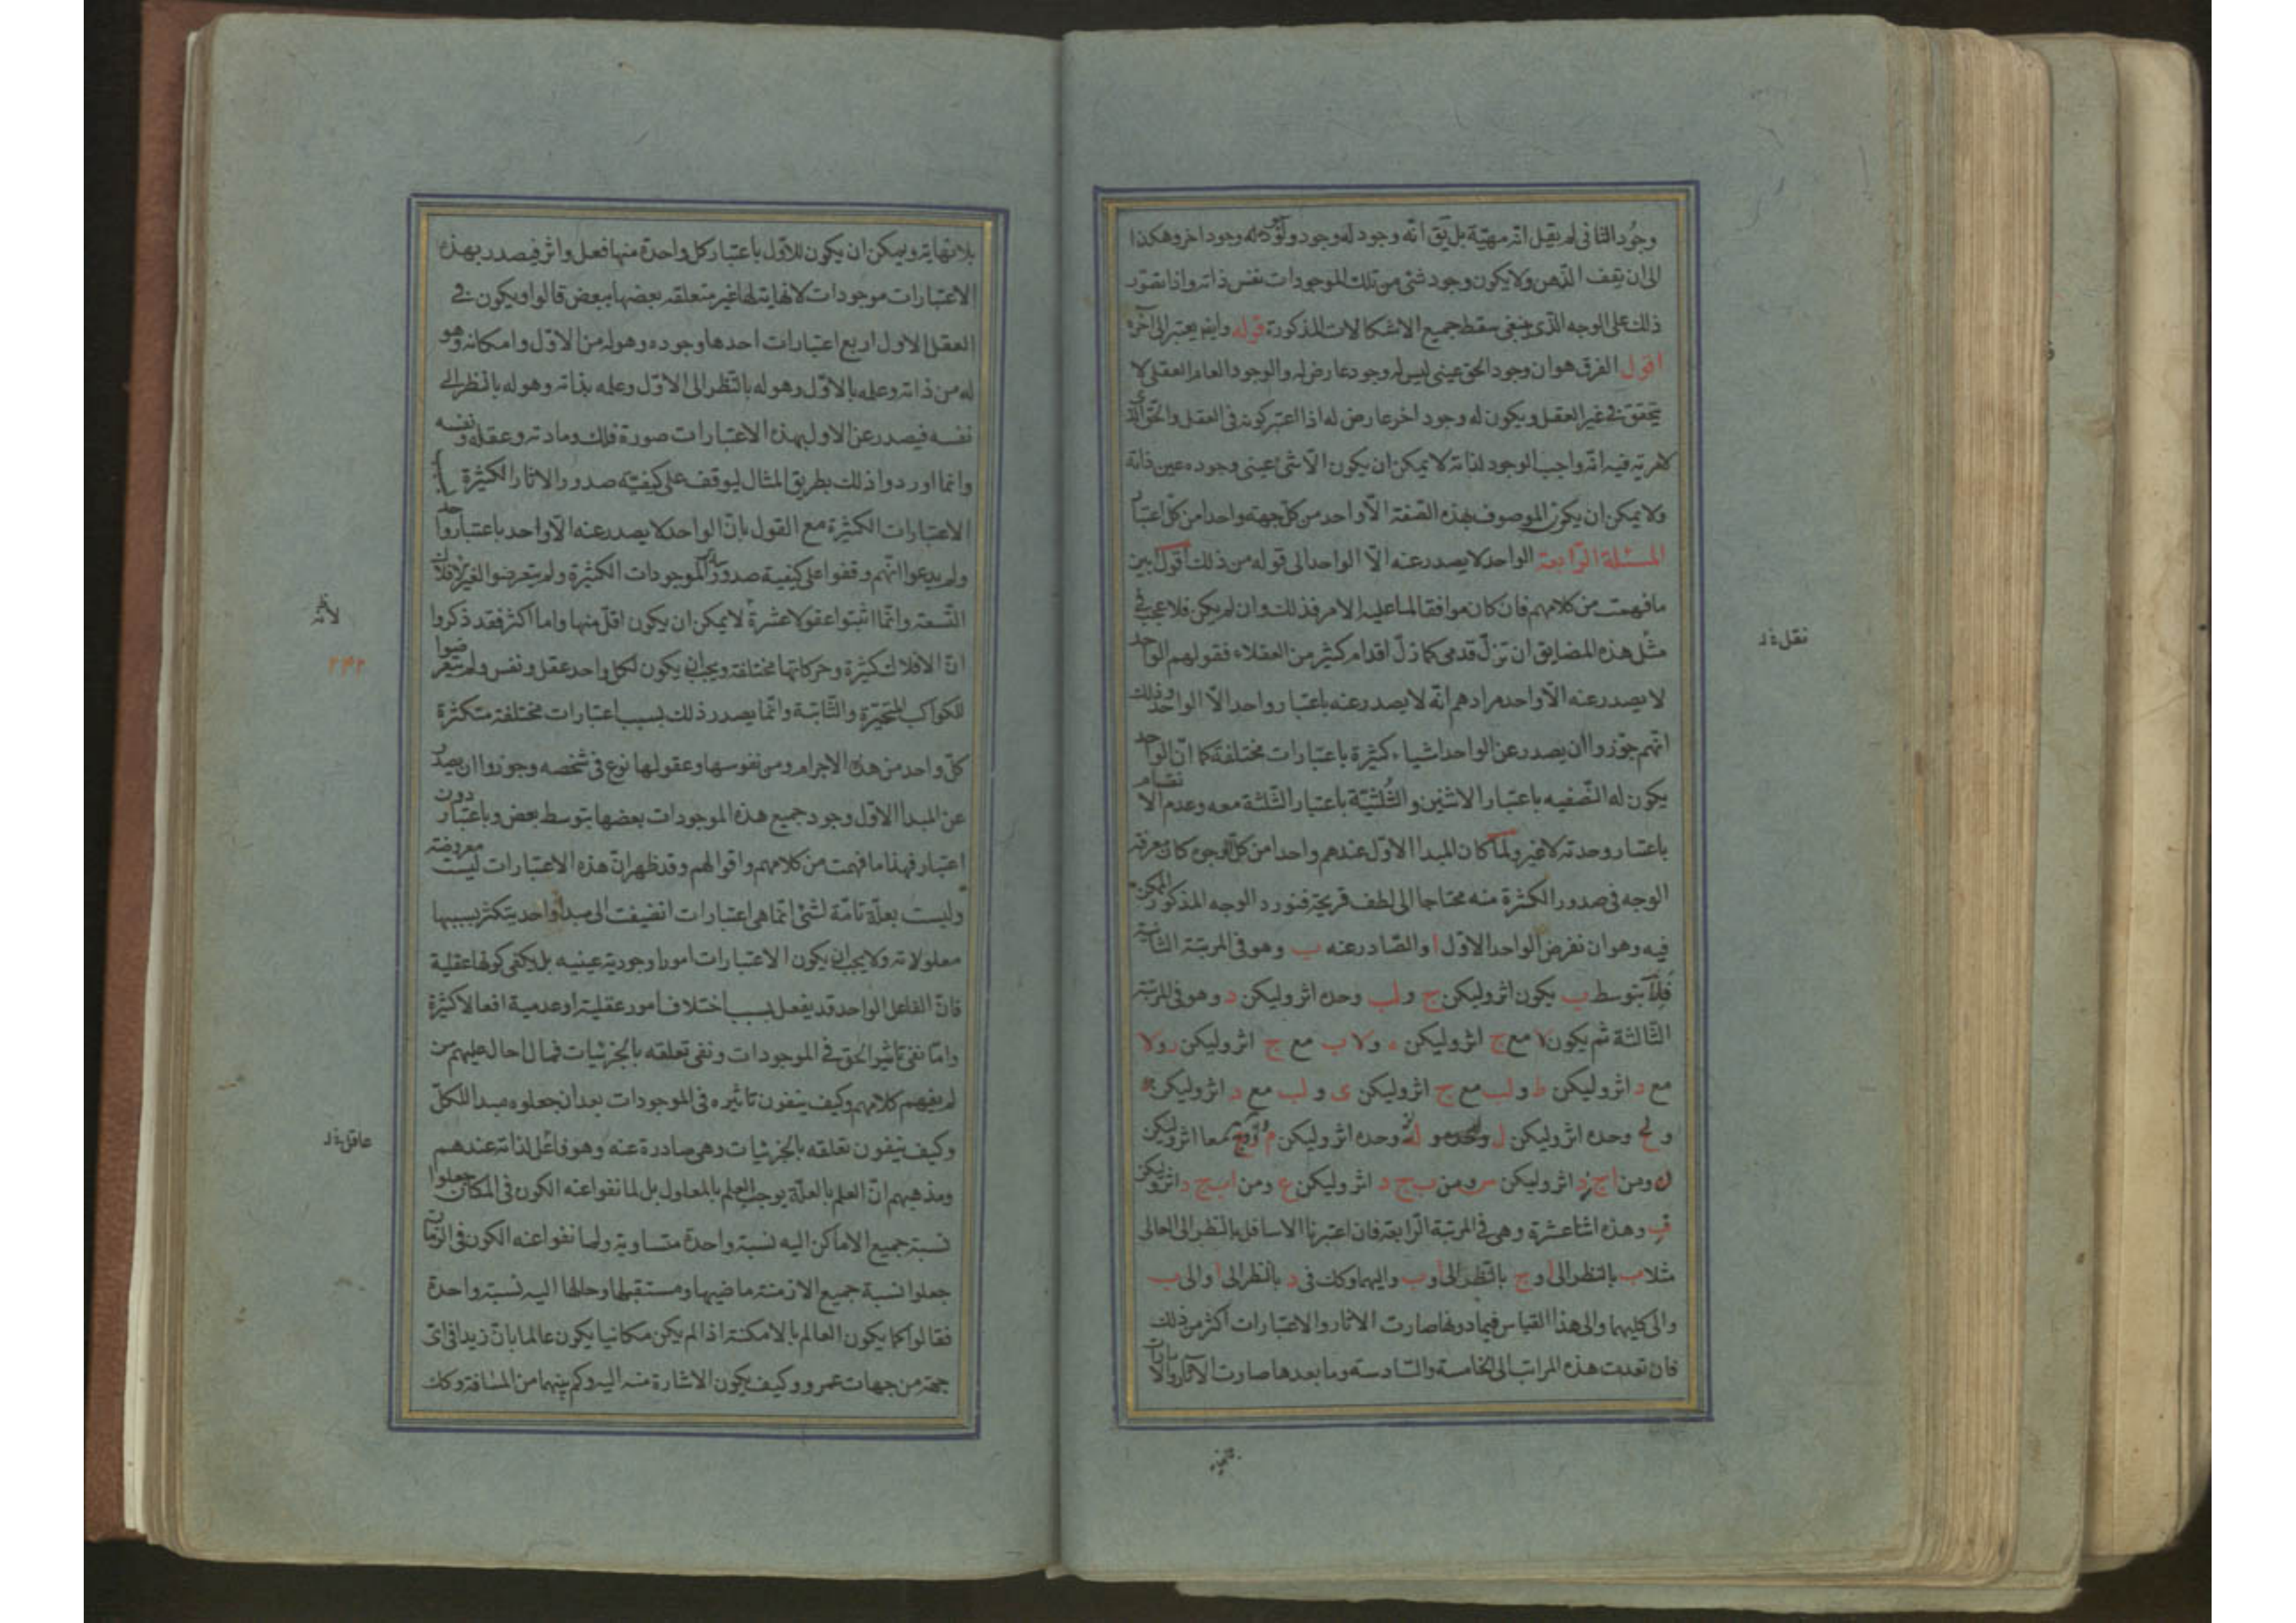 وجود الثانى لم يقبل انه مهيّة بل يق انه وجود له وجود ولوجوده وجود اخر وهكذا
الى ان يقف الذهن ولا يكون وجود شئ من تلك الموجودات نفس ذاته واذا تصوّر
ذلك على الوجه الّذى ينبغى سقط جميع الاشكالات المذكورة قوله وايضا يعتبر الى آخره
اقول الفرق هو ان وجود الحق عينى ليس له وجود عارض له والوجود العام العقلى لا
يتحقق فى غير العقل ويكون له وجود اخر عارض له اذا اعتبر كونه فى العقل والحق الذى
لامرية فيه انّه واجب الوجود لذاته لا يمكن ان يكون الّا شئ عينى وجوده عين ذاته
ولا يمكن ان يكون الموصوف بهذه الصّفة الّا واحد من كلّ جهة واحدا من كلّ اعتبار
المسئلة الرّابعة الواحد لا يصدر عنه الّا الواحد الى قوله من ذلك اقول ابين
ما فهمت من كلامهم فان كان موافقا لما عليه الامر فذلك وان لم يكن فلا عجب فى
مثل هذه المضايق ان تزلّ قدمى كما زلّ اقدام كثير من العقلاء فقولهم الواحد
لا يصدر عنه الّا واحد مرادهم انّه لا يصدر عنه باعتبار واحد الّا الواحد وذلك
انّهم جوّزوا ان يصدر عن الواحد اشياء كثيرة باعتبارات مختلفة كما انّ الواحد
يكون له النّصفيه باعتبار الاثنين والثّلثيّة باعتبار الثّلثة معه وعدم الانقسام
باعتبار وحدته لا غير ولمّا كان المبدا الاوّل عندهم واحدا من كلّ الوجوه كان معرفة
الوجه فى صدور الكثرة منه محتاجا الى لطف قريحة فنورد الوجه المذكور الممكن
فيه وهو ان نفرض الواحد الاوّل ا والصّادر عنه ب وهو فى المرتبة الثانية
فلا بتوسط ب يكون اثر وليكن ج ولب وحده اثر وليكن د وهو فى المرتبة
الثّالثة ثم يكون لا مع ج اثر وليكن ه ولا ب مع ج اثر وليكن ر ولا
مع د اثر وليكن ط ولب مع ج اثر وليكن ى ولب مع د اثر وليكن
ولج وحده اثر وليكن ل ولد وحده اثر وليكن م معا اثر وليكن
ن ومن ا ج د اثر وليكن س ومن ب ج د اثر وليكن ع ومن ا ب ج د اثر وليكن
ف وهذه اثنا عشرة وهى فى المرتبة الرّابعة فان اعتبرنا الاسافل بالنظر الى العالى
مثلا ب بالنظر الى ا وج بالنّظر الى ا وب واليهما وكك فى د بالنظر الى ا والى ب
والى كليهما والى هذا القياس فيما دونها صارت الاثار والاعتبارات اكثر من ذلك
فان تعدت هذه المراتب الى الخامسة والسّادسة وما بعدها صارت الاثار والاعتبارات
نقل نه د
بلا نهاية ويمكن ان يكون للاوّل باعتبار كل واحدة منها فعل واثر فيصدر بهذه
الاعتبارات موجودات لا نهاية لها غير متعلقه بعضها ببعض قالوا ويكون فى
العقل الاول اربع اعتبارات احدها وجوده وهو له من الاوّل وامكانه وهو
له من ذاته وعلمه بالاوّل وهو له بالنّظر الى الاوّل وعلمه بذاته وهو له بالنظر الى
نفسه فيصدر عن الاول بهذه الاعتبارات صورة فلك ومادته وعقله ونفسه
وانما اوردوا ذلك بطريق المثال ليوقف على كيفيّة صدور الاثار الكثيرة
الاعتبارات الكثيرة مع القول بانّ الواحد لا يصدر عنه الّا واحد باعتبار واحد
ولم يدعوا انّهم وقفوا على كيفية صدور ساير الموجودات الكثيرة ولم يتعرضوا لغير الافلاك
التّسعة وانّما اثبتوا عقولا عشرة لا يمكن ان يكون اقل منها واما اكثر فقد ذكروا
انّ الافلاك كثيرة وحركاتها مختلفة ويجب ان يكون لكل واحد عقل ونفس ولم يتعرضوا
للكواكب المتحيّرة والثّابتة وانّما يصدر ذلك بسبب اعتبارات مختلفة متكثرة
كلّ واحد من هذه الاجرام ومن نفوسها وعقولها نوع فى شخصه وجوزوا ان يصدر
عن المبدا الاوّل وجود جميع هذه الموجودات بعضها بتوسط بعض وباعتبار دون
اعتبار فهذا ما فهمت من كلامهم واقوالهم وقد ظهر انّ هذه الاعتبارات ليست معروضة
وليست بعلّة تامّة لشئ انّما هى اعتبارات انضيفت الى مبدا واحد يتكثر بسببها
معلولاته ولا يجب ان يكون الاعتبارات امورا وجودية عينيه بل يكفى كونها عقلية
فانّ الفاعل الواحد قد يفعل بسبب اختلاف امور عقلية او عدمية افعالا كثيرة
وامّا نفى تاثير الحق فى الموجودات ونفى تعلقه بالجزئيات فمما احال عليهم من
لم يفهم كلامهم وكيف ينفون تاثيره فى الموجودات بعد ان جعلوه مبدا للكلّ
وكيف ينفون تعلقه بالجزئيات وهى صادرة عنه وهو فاعل لذاته عندهم
ومذهبهم انّ العلم بالعلّة يوجب العلم بالمعلول بل لما نفوا عنه الكون فى المكان جعلوا
نسبة جميع الاماكن اليه نسبة واحدة متساوية ولما نفوا عنه الكون فى الزمان
جعلوا نسبة جميع الازمنة ماضيها ومستقبلها وحالها اليه نسبة واحدة
فقالوا كما يكون العالم بالامكنة اذا لم يكن مكانيا يكون عالما بانّ زيدا فى اىّ
جهة من جهات عمرو وكيف يكون الاشارة منه اليه وكم بينهما من المسافة وكك
٢٤٢
عاقل نه د